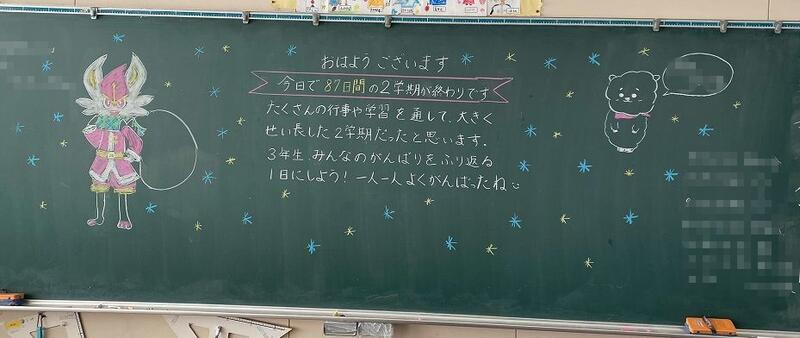 おはようございます
今日で87日間の2学期が終わりです
たくさんの行事や学習を通して、大きく
せい長した2学期だったと思います.
3年生、みんなのがんばりをふり返る
1日にしよう！一人一人よくがんばったね